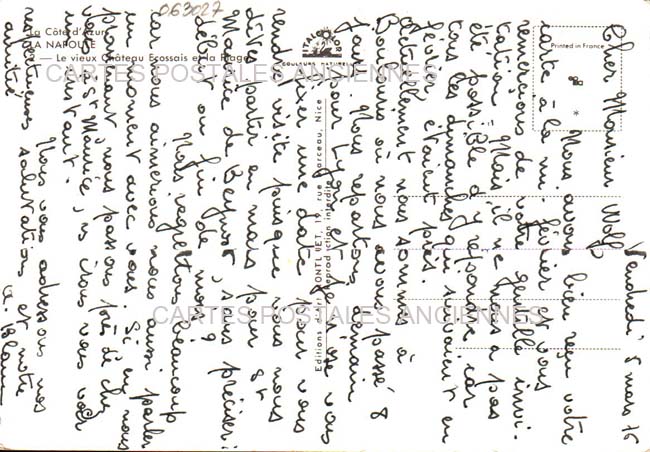 063027
La Côte d'Azur
LA NAPOULE
— Le vieux Château Ecossais et la Plage
Printed in France
Editions d'Art MONTLUET, 19, rue Marceau, Nice
Reproduction interdite
CARTES POSTALES ANCIENNES
CARTES POSTALES ANCIENNES
Vendredi 5 mars 76
Cher Monsieur Wolf
Nous avons bien reçu votre
carte à la mi-février et vous
remercions de votre gentille invi-
tation. Mais il ne nous a pas
été possible d'y répondre car
tous les dimanches qui suivaient en
février étaient pris.
Actuellement nous sommes à
où nous avons passé 8
jours. Nous repartons demain
pour Lyon et je ne vous
fixe une date pour vous
rendre visite puisque vous nous
dites partir en mars pour St
Maurice de Beynost, sans préciser:
début ou fin de mois?
Nous regrettons beaucoup
car nous aimerions nous aussi parler
un moment avec vous. Si en nous
promenant nous passons près de chez
vous à St Maurice, irions vous voir
un instant.
Nous vous adressons nos
meilleures salutations et notre
amitié